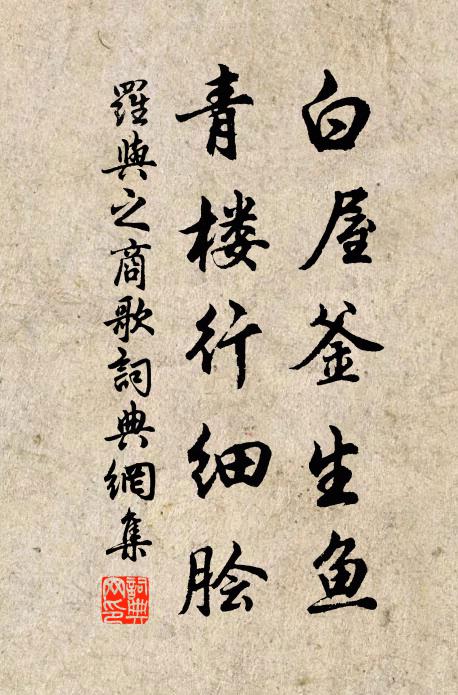 白屋釜生鱼
青楼行细脍
羅與之商歌詞典網集
詞典